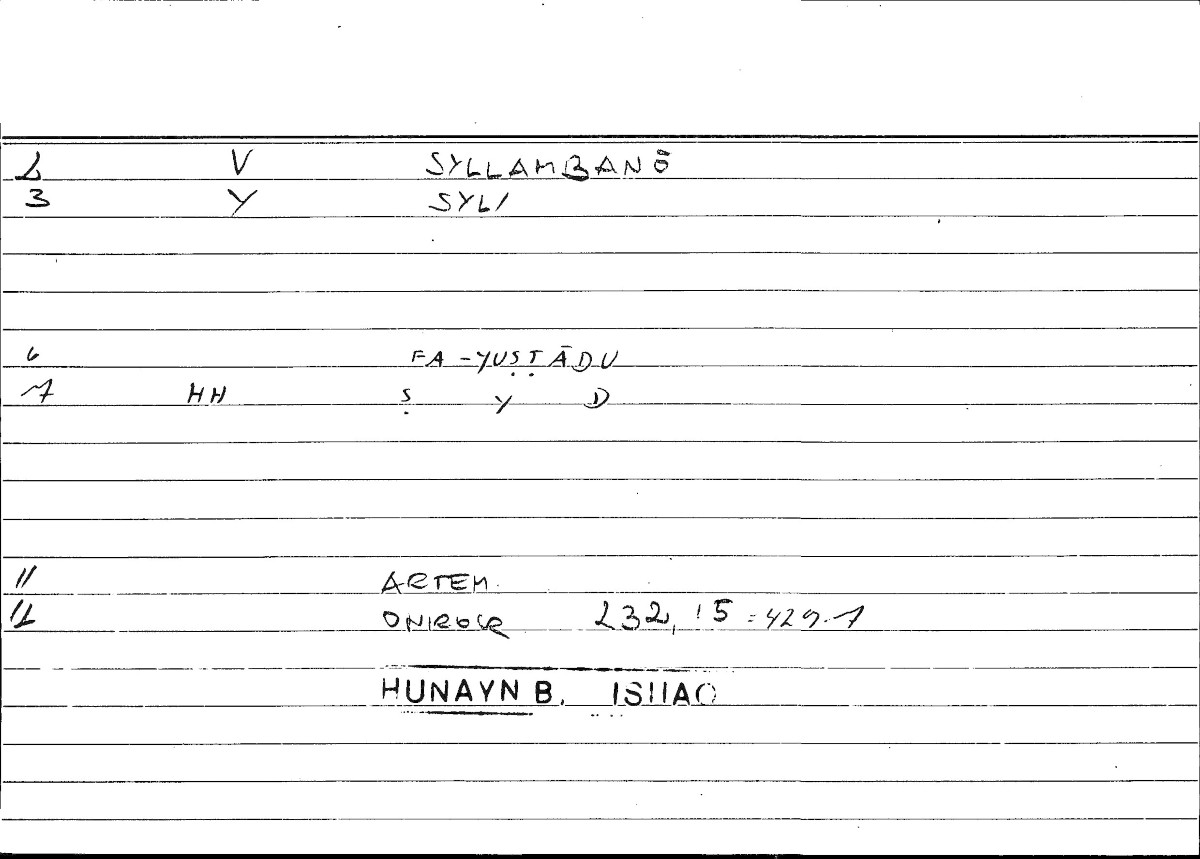 2 V SYLLAMBANŌ
3 Y SYL/
6 FA-YUṢṬĀDU
7 HH Ṣ Y D
11 ARTEM.
12 ONIROCR 232, 15 = 429.7
HUNAYN B. ISHAQ